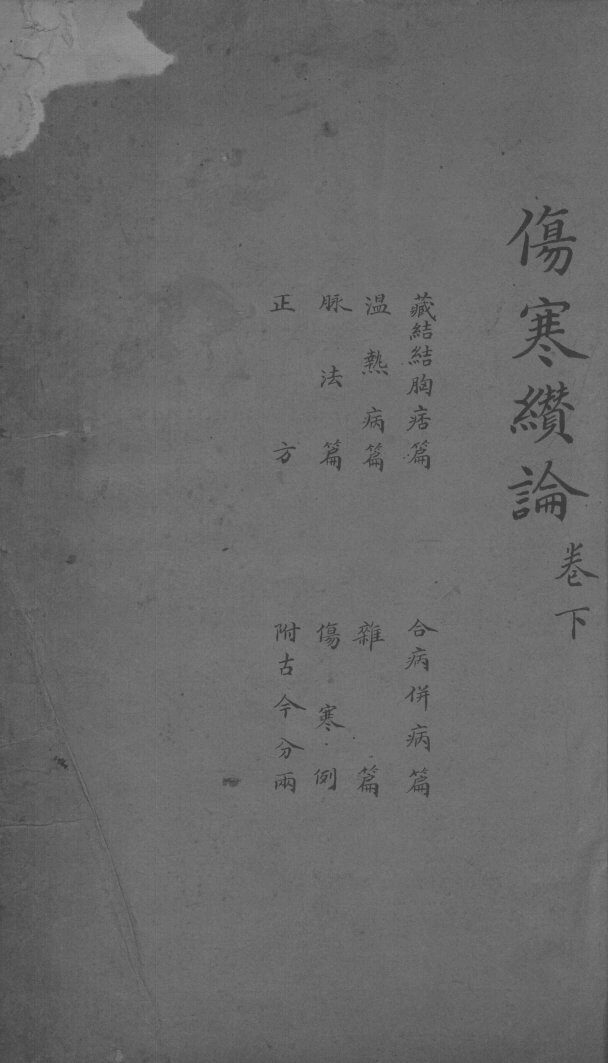 傷寒纘論
卷下
藏結結胸痞篇
合病併病篇
温熱病篇
雜篇
脉法篇
傷寒例
正方
附古今分兩